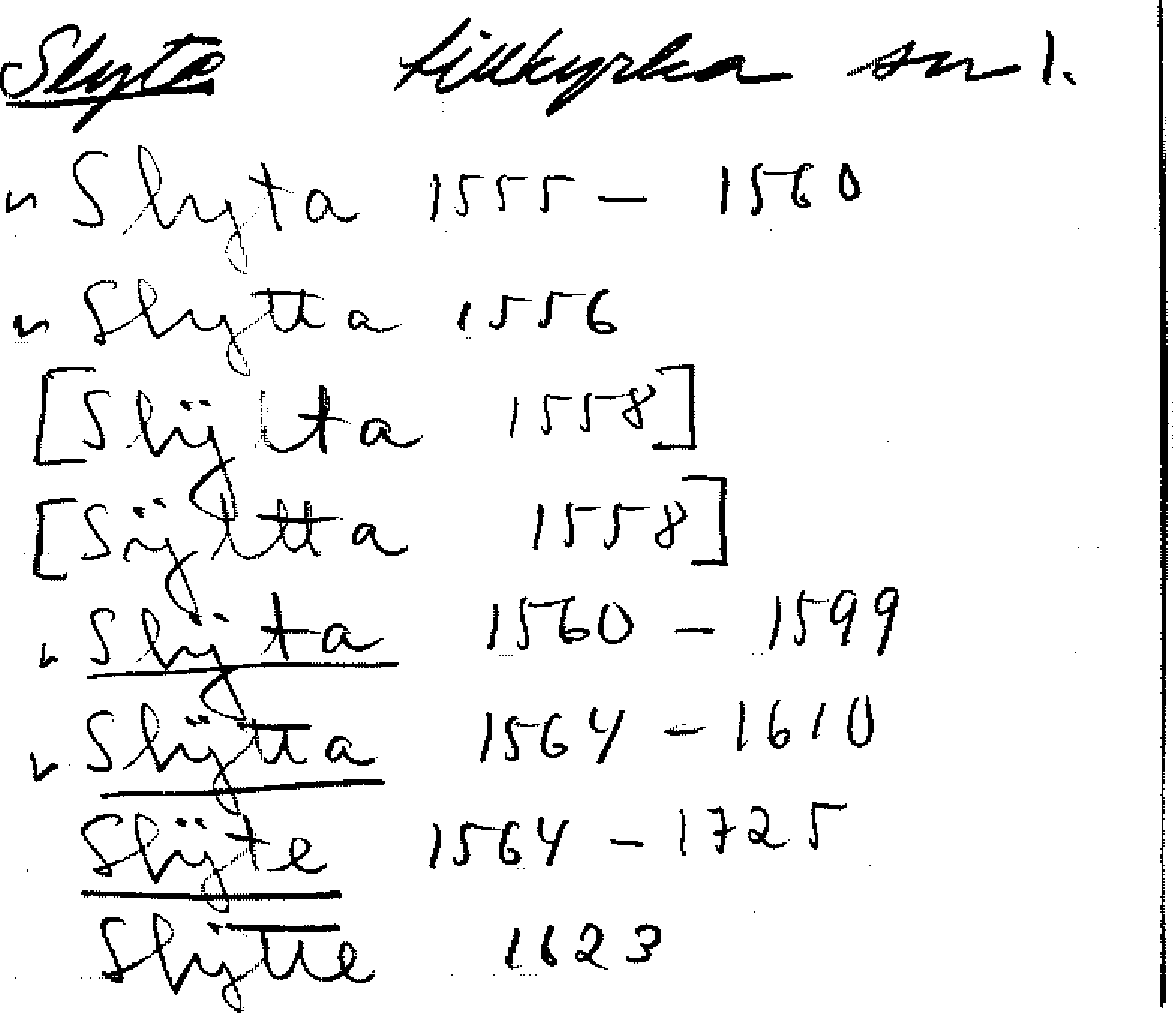 Slyte Lillkyrka sn 1.
Slyta 1555 – 1560
Slytta 1556
[Slÿlta 1558]
[Sÿltta 1558]
Slÿta 1560 – 1599
Slÿtta 1564 – 1610
Slÿte 1564 – 1725
Slÿtte 1623